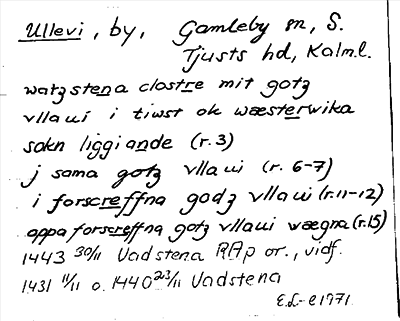 Ullevi, by, Gamleby sn, S.
Tjusts hd, Kalm.l.
watzstena clostre mit gotz
vllaui i tiwst ok wæsterwika
sokn liggiande (r.3)
j sama gotz vllaui (r. 6-7)
i forscreffna godz vllaui (r.11-12)
oppa forscreffna gotz vllaui wægna (r.15)
1443 30/11 Vadstena RAp or., vidf.
1431 11/11 o. 1440 23/11 Vadstena
E.L-e 1971.